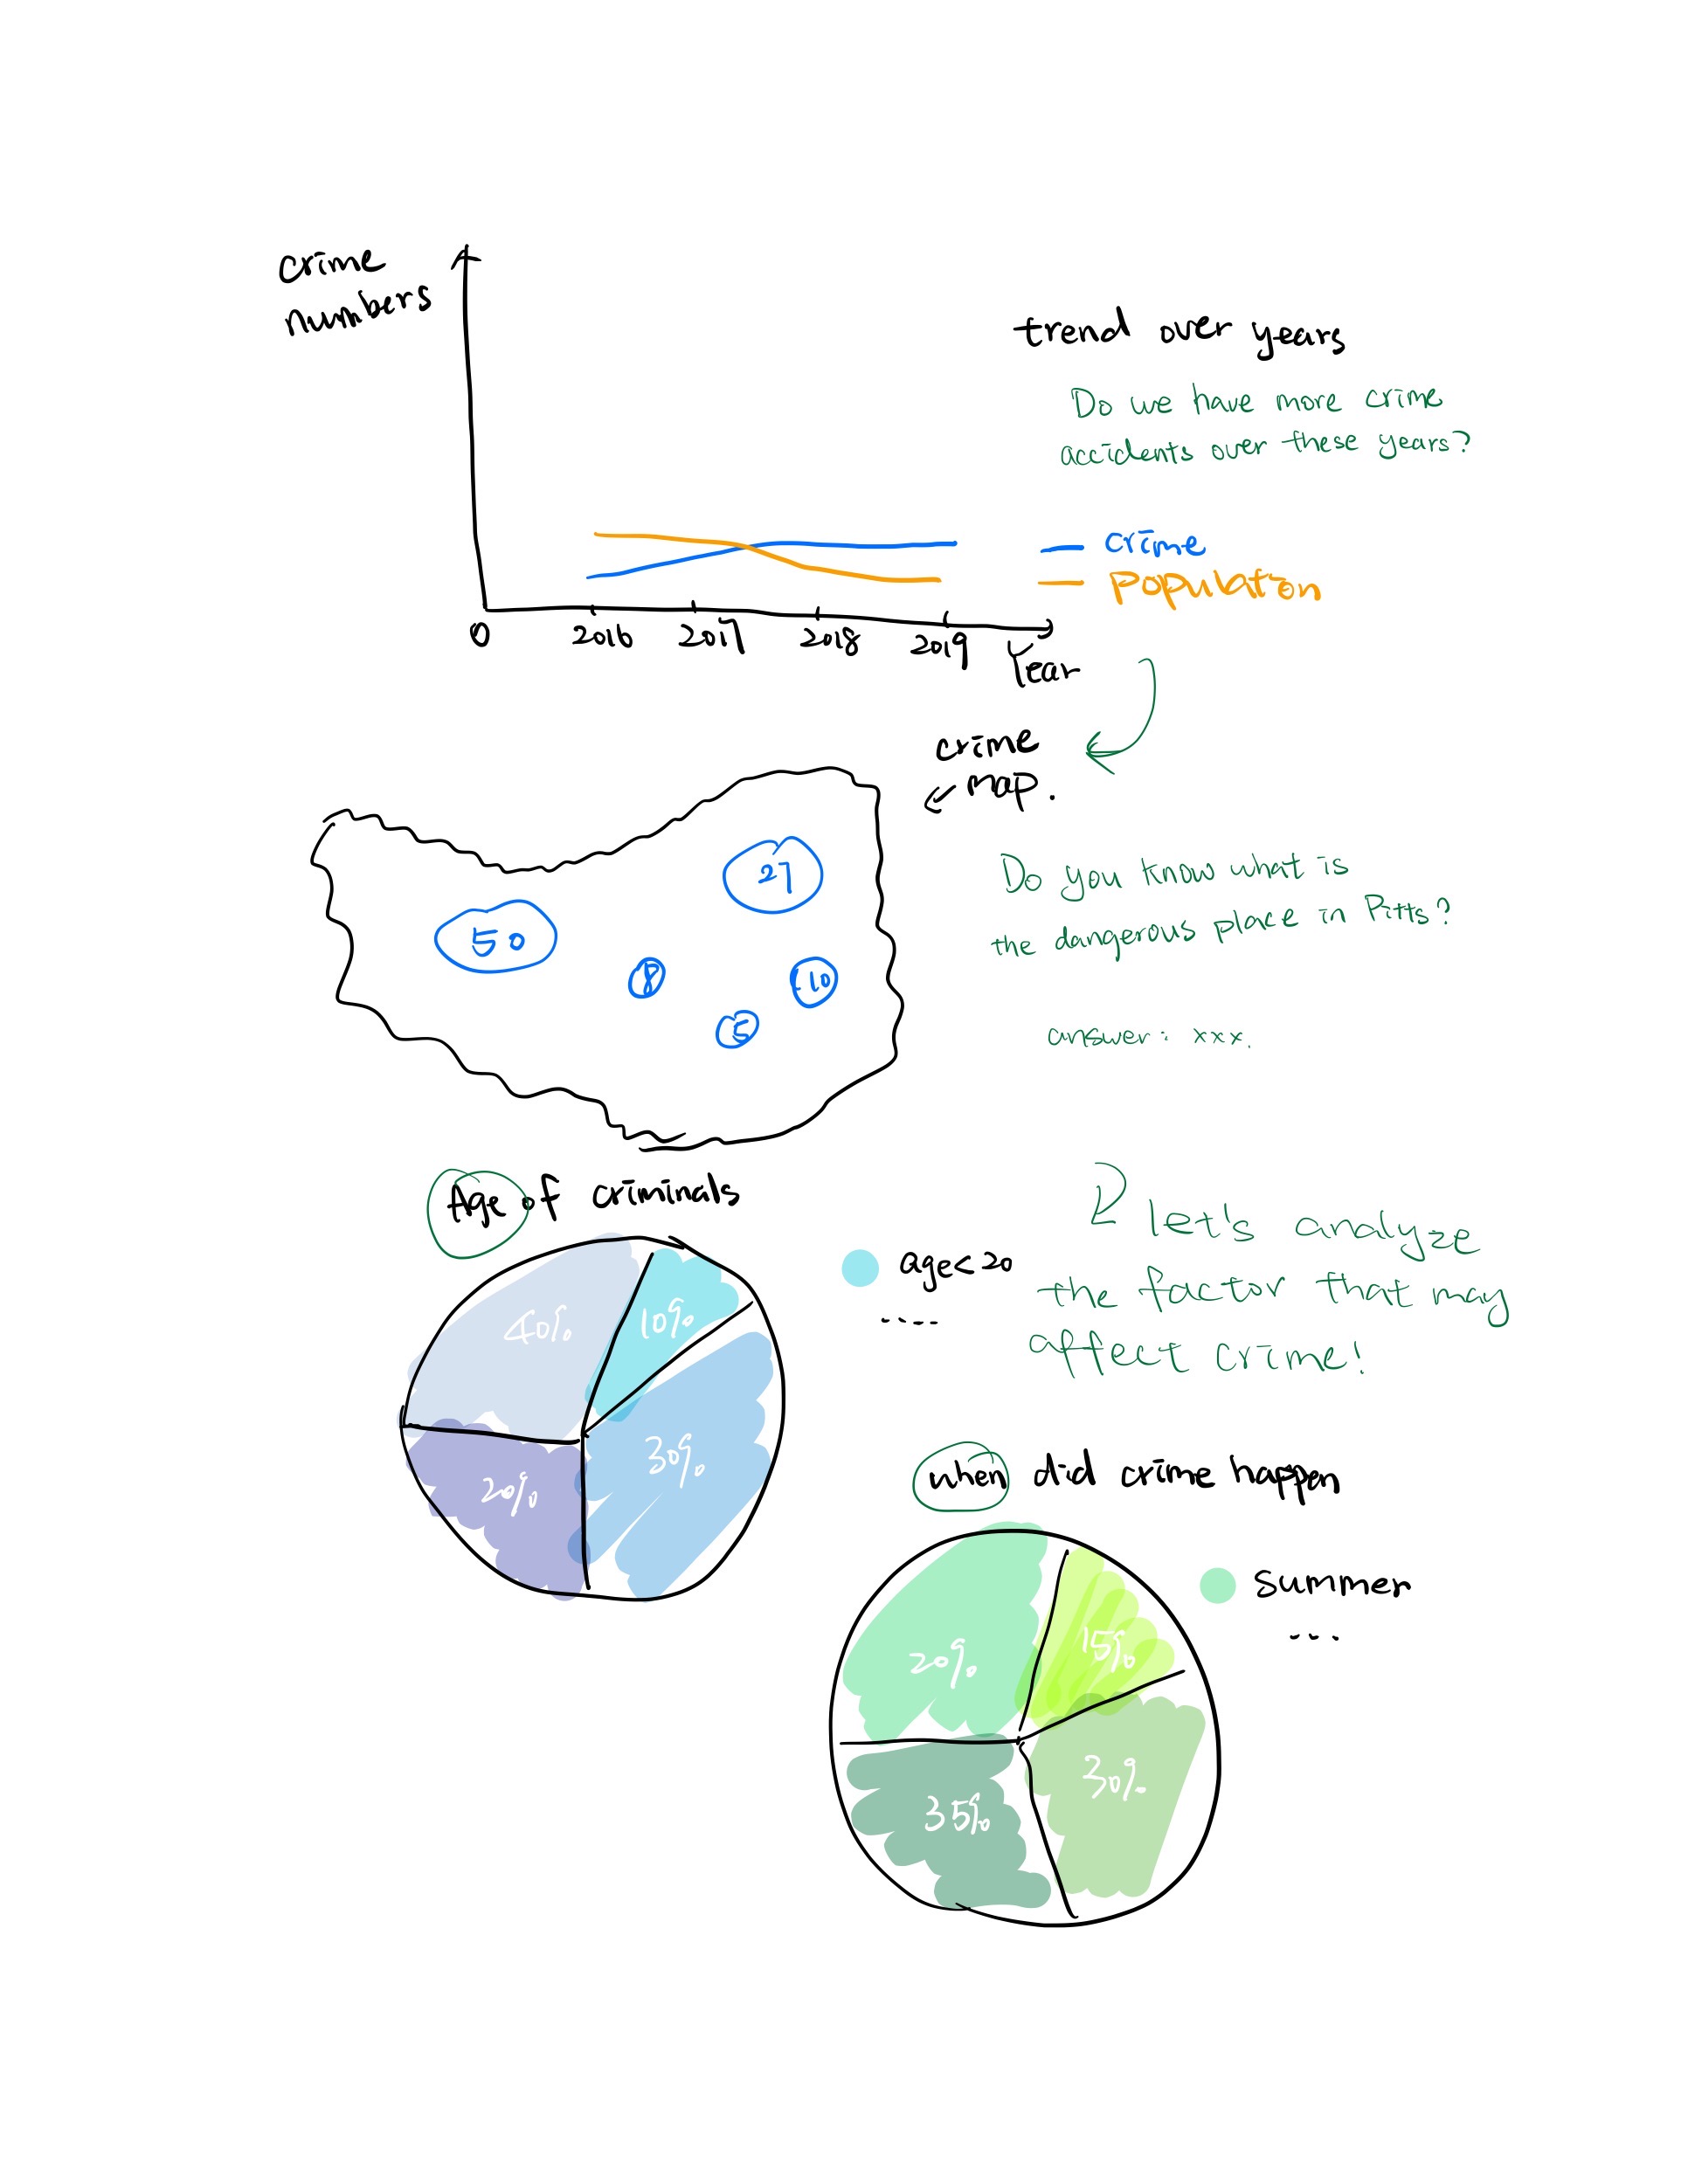 crime
numbers
trend over years
Do we have more crime
accidents over these years?
crime
Population
0 2016 2017 2018 2019
Year
crime
map.
27
50
8
10
5
Do you know what is
the dangerous place in Pitts?
answer: xxx.
Age of criminals
let's analyze
the factor that may
affect crime!
age<20
....
40%
10%
30%
20%
when did crime happen
summer
...
20%
15%
30%
35%